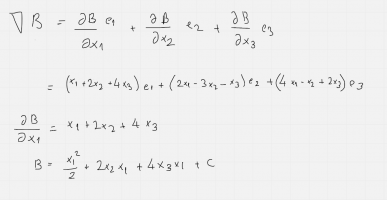 ∇B = ∂B/∂x₁ e₁ + ∂B/∂x₂ e₂ + ∂B/∂x₃ e₃
= (x₁+2x₂+4x₃)e₁ + (2x₁-3x₂-x₃)e₂ + (4x₁-x₂+2x₃)e₃
∂B/∂x₁ = x₁+2x₂+4x₃
B = x₁²/2 + 2x₂x₁ + 4x₃x₁ + C